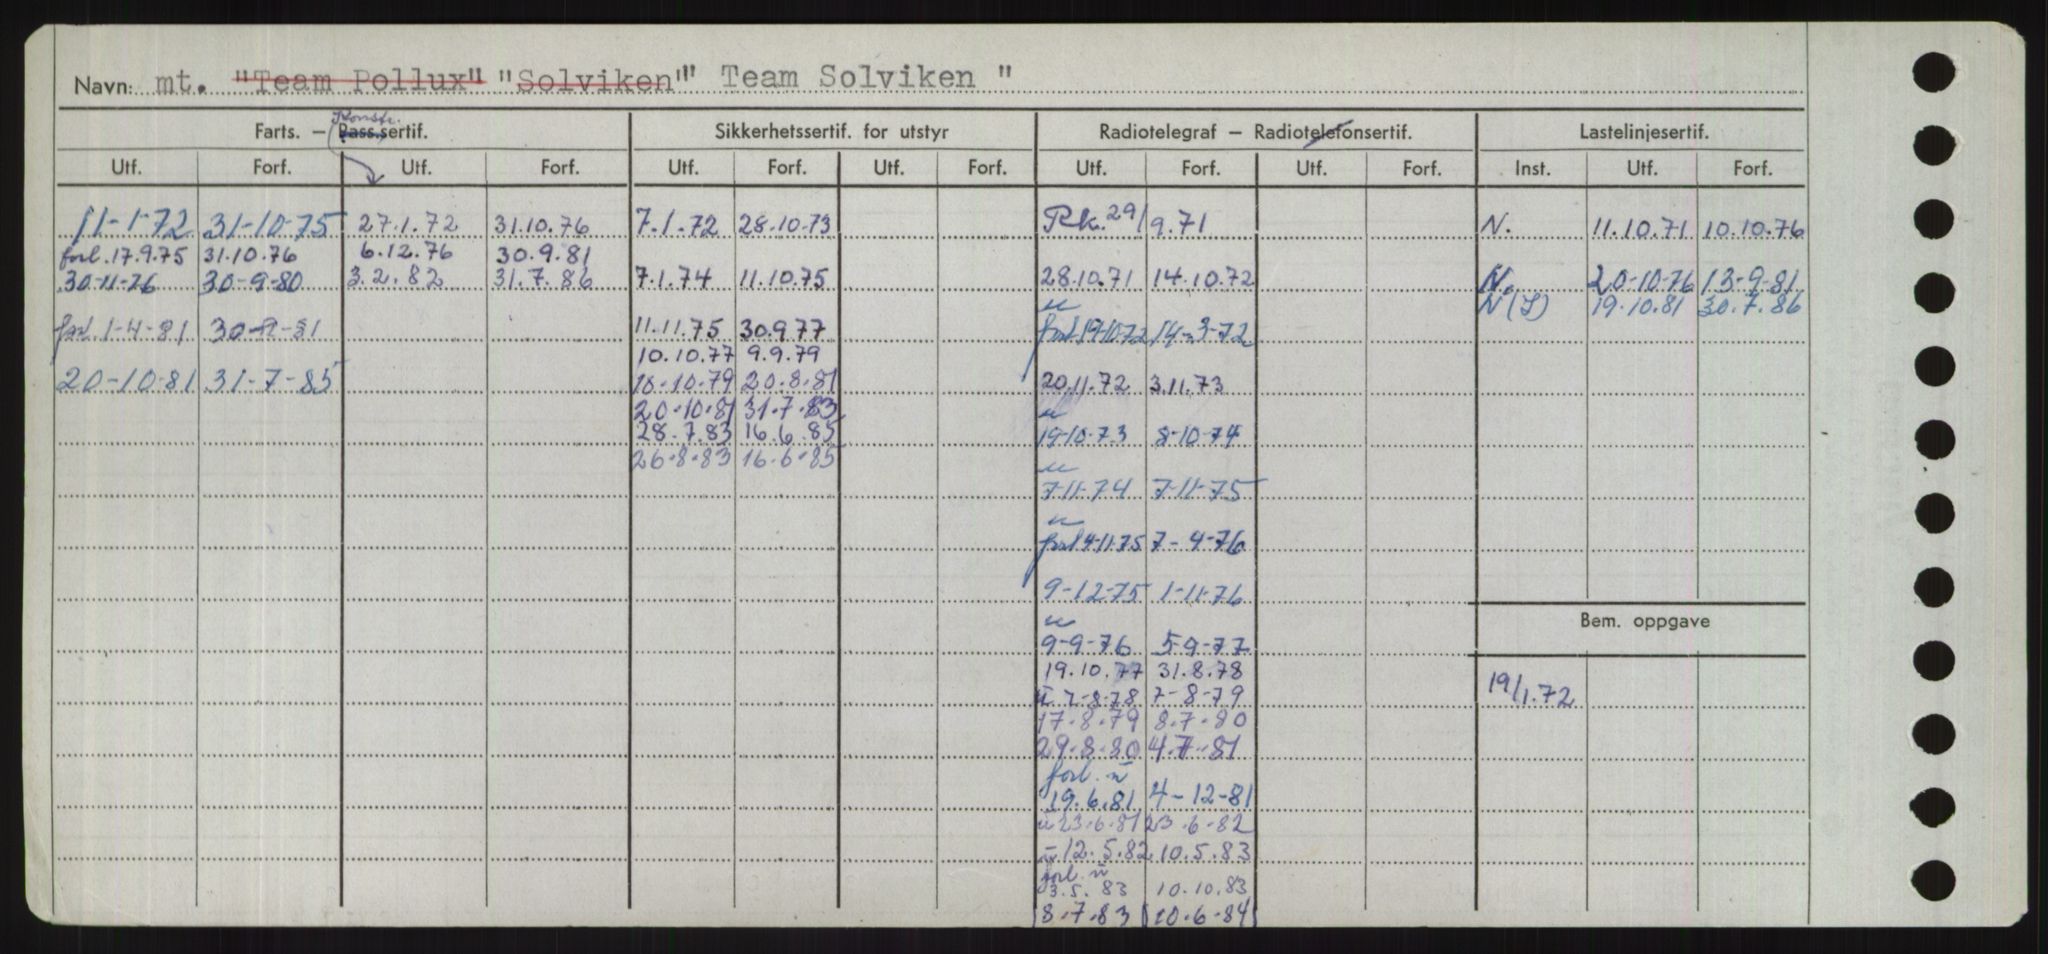 Navn: mt. "Team Pollux" "Solviken" " Team Solviken "
Farts. – Pass.sertif. Konstr. Sikkerhetssertif. for utstyr Radiotelegraf – Radiotelefonsertif. Lastelinjesertif.
Utf. Forf. Utf. Forf. Utf. Forf. Utf. Forf. Utf. Forf. Utf. Forf. Inst. Utf. Forf.
11-1-72 31-10-75 27.1.72 31.10.76 7.1.72 28.10.73 Rk. 29/9.71 N. 11.10.71 10.10.76
forl. 17.9.75 31.10.76 6.12.76 30.9.81
30-11-76 30-9-80 3.2.82 31.7.86 7.1.74 11.10.75 28.10.71 14.10.72 N. 20-10-76 13-9-81
u N(I) 19.10.81 30.7.86
forl. 1-4-81 30-9-81 11.11.75 30.9.77 forl 19-10-72 14-3-72
10.10.77 9.9.79
20-10-81 31-7-85 18.10.79 20.8.81 20.11.72 3.11.73
20.10.81 31.7.83 u
28.7.83 16.6.85 19-10-73 8-10-74
26.8.83 16.6.85 u
7-11-74 7-11-75
u
forl 4-11-75 7-4-76
9-12-75 1-11-76
u Bem. oppgave
9-9-76 5-9-77
19.10.77 31.8.78
u 7-8-78 7-8-79 19/1.72
17.8.79 8.7.80
29.8.80 4.7.81
forl. u
19.6.81 4-12-81
u 23.6.81 23.6.82
u 12.5.82 10.5.83
forl. u
3.5.83 10.10.83
8.7.83 10.6.84